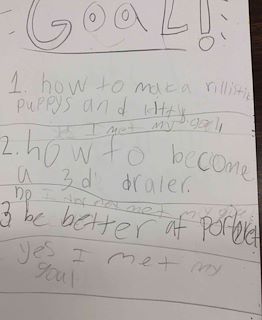 GOAL!
1. how to mak a rillistic
puppys and kitty
yes I met my goal
2. how to become
a 3d draler.
no I do not met my goal
3 be better at portoret
yes I met my
goal